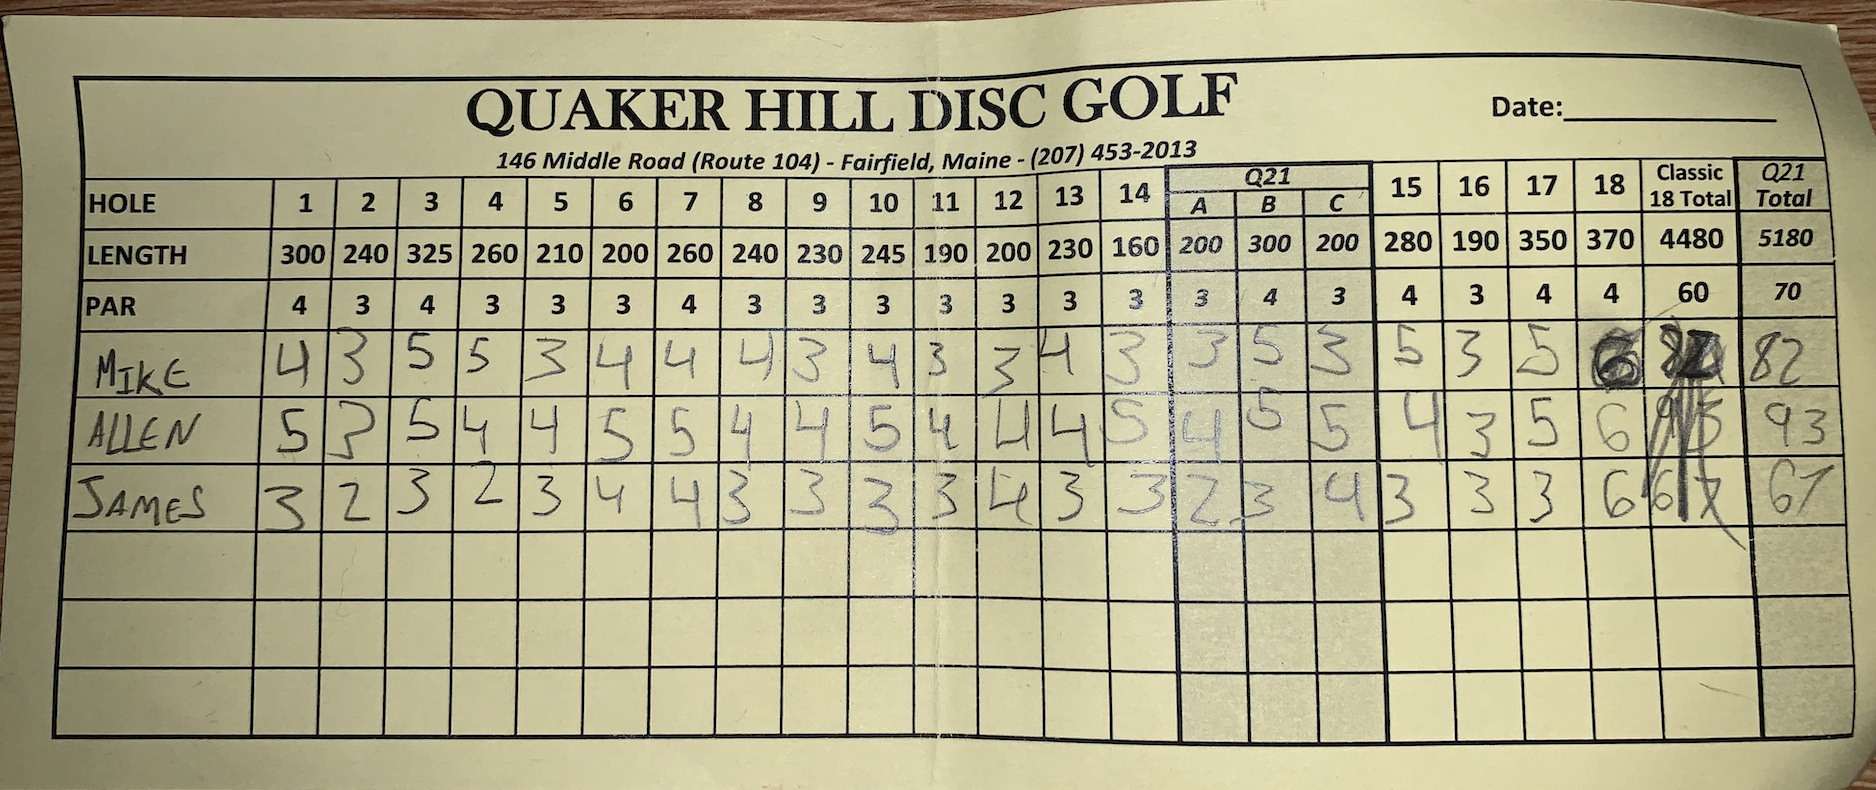 QUAKER HILL DISC GOLF
Date:
146 Middle Road (Route 104) - Fairfield, Maine - (207) 453-2013
HOLE 1 2 3 4 5 6 7 8 9 10 11 12 13 14 Q21 A B C 15 16 17 18 Classic 18 Total Q21 Total
LENGTH 300 240 325 260 210 200 260 240 230 245 190 200 230 160 200 300 200 280 190 350 370 4480 5180
PAR 4 3 4 3 3 3 4 3 3 3 3 3 3 3 3 4 3 4 3 4 4 60 70
MIKE 4 3 5 5 3 4 4 4 3 4 3 3 4 3 3 5 3 5 3 5 6 82
ALLEN 5 3 5 4 4 5 5 4 4 5 4 4 4 5 4 5 5 4 3 5 6 93
JAMES 3 2 3 2 3 4 4 3 3 3 3 4 3 3 2 3 4 3 3 3 6 67